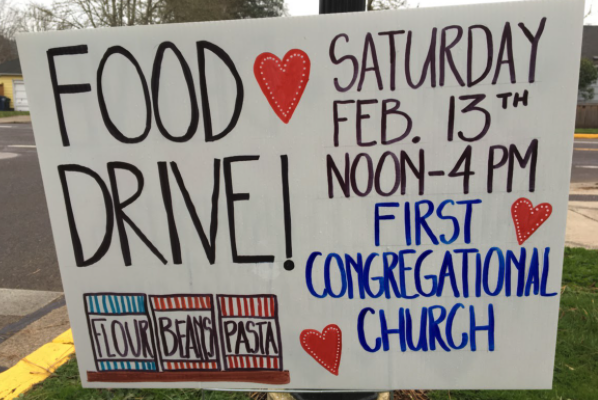 FOOD
DRIVE!
SATURDAY
FEB. 13TH
NOON-4 PM
FIRST
CONGREGATIONAL
CHURCH
FLOUR BEANS PASTA